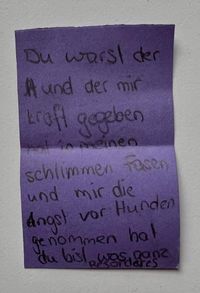 Du warst der
Hund der mir
kraft gegeben
hat in meinen
schlimmen Fasen
und mir die
Angst vor Hunden
genommen hat
du bist was ganz
besonderes